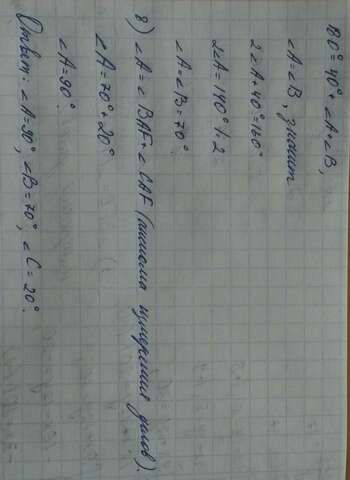 180° = 40° + ∠A + ∠B,
∠A = ∠B, значит
2∠A + 40° = 160°
2∠A = 140° | : 2
∠A = ∠B = 70°
8) ∠A = ∠BAF + ∠CAF (аксиома измерения углов).
∠A = 70° + 20°
∠A = 90°
Ответ: ∠A = 90°, ∠B = 70°, ∠C = 20°.